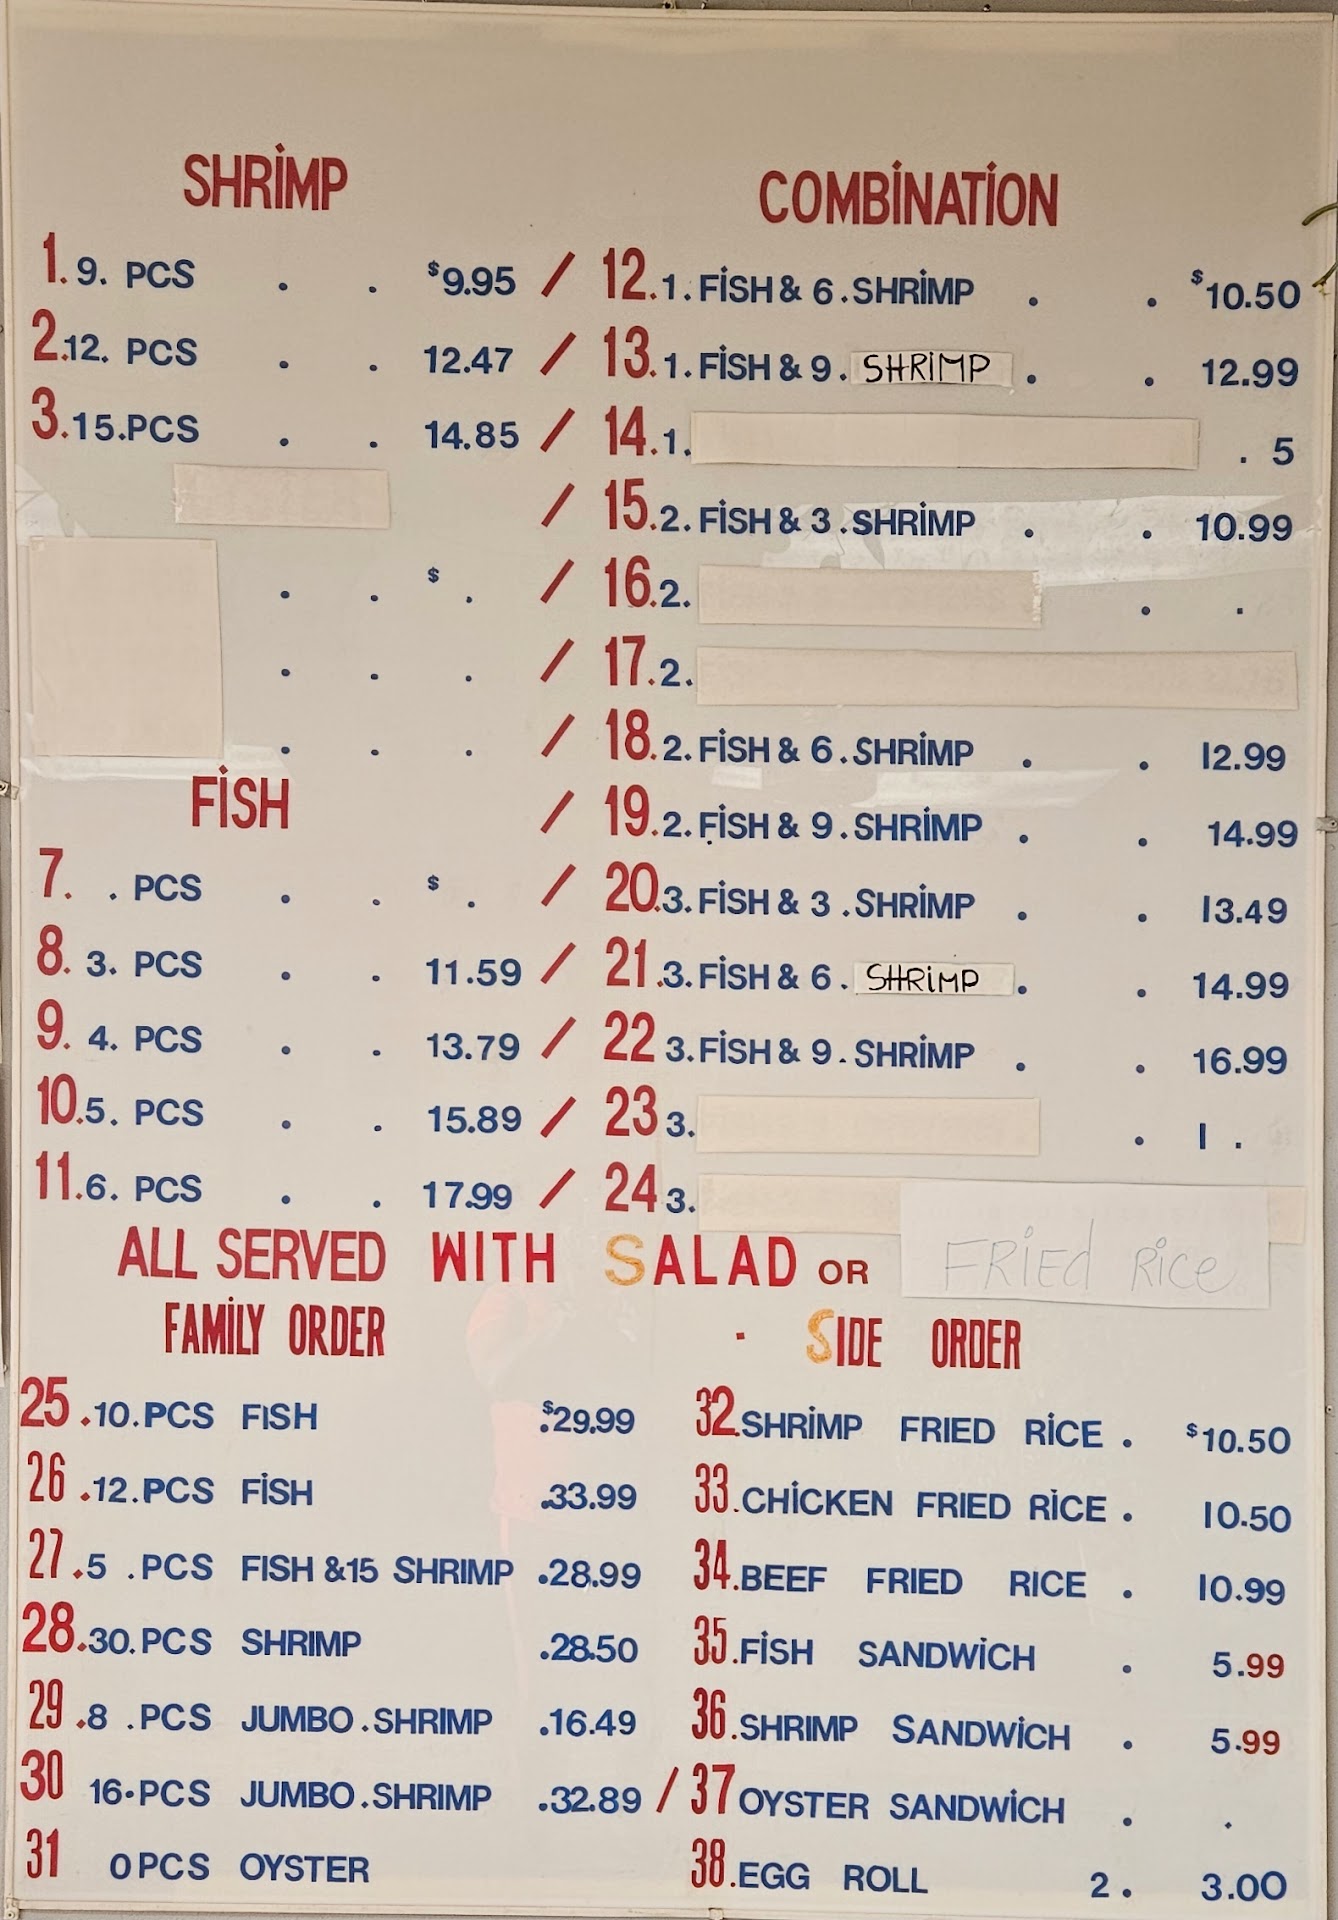 SHRiMP
1. 9. PCS . . $9.95 /
2. 12. PCS . . 12.47 /
3. 15. PCS . . 14.85 /
/
. . $ . /
. . . /
. . . /
FiSH /
7. . PCS . . $ . /
8. 3. PCS . . 11.59 /
9. 4. PCS . . 13.79 /
10. 5. PCS . . 15.89 /
11. 6. PCS . . 17.99 /
COMBiNATiON
12. 1. FiSH & 6 . SHRiMP . . $10.50
13. 1. FiSH & 9 . SHRiMP . . 12.99
14. 1. . 5
15. 2. FiSH & 3 . SHRiMP . . 10.99
16. 2. . .
17. 2.
18. 2. FiSH & 6 . SHRiMP . . 12.99
19. 2. FiSH & 9 . SHRiMP . . 14.99
20. 3. FiSH & 3 . SHRiMP . . 13.49
21. 3. FiSH & 6 . SHRiMP . . 14.99
22 3. FiSH & 9 . SHRiMP . . 16.99
23 3. . 1 .
24 3.
ALL SERVED WITH SALAD OR FRiEd Rice
FAMiLY ORDER
25 . 10. PCS FISH . $29.99
26 . 12. PCS FiSH . 33.99
27 . 5 . PCS FISH &15 SHRIMP . 28.99
28 . 30. PCS SHRIMP . 28.50
29 . 8 . PCS JUMBO . SHRIMP . 16.49
30 16. PCS JUMBO . SHRIMP . 32.89 /
31 0 PCS OYSTER
. SIDE ORDER
32. SHRiMP FRIED RiCE . $10.50
33. CHiCKEN FRIED RiCE . 10.50
34. BEEF FRIED RICE . 10.99
35. FiSH SANDWiCH . 5.99
36. SHRIMP SANDWiCH . 5.99
37 OYSTER SANDWiCH . .
38. EGG ROLL 2 . 3.00